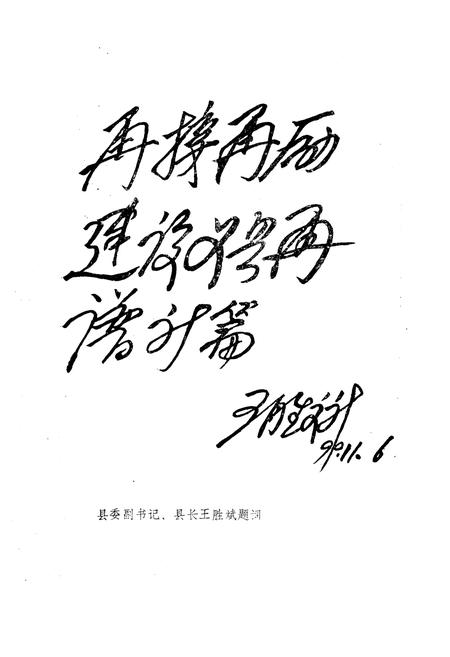 再接再厉
建设再
谱新篇
王胜斌
90.11.6
县委副书记、县长王胜斌题词